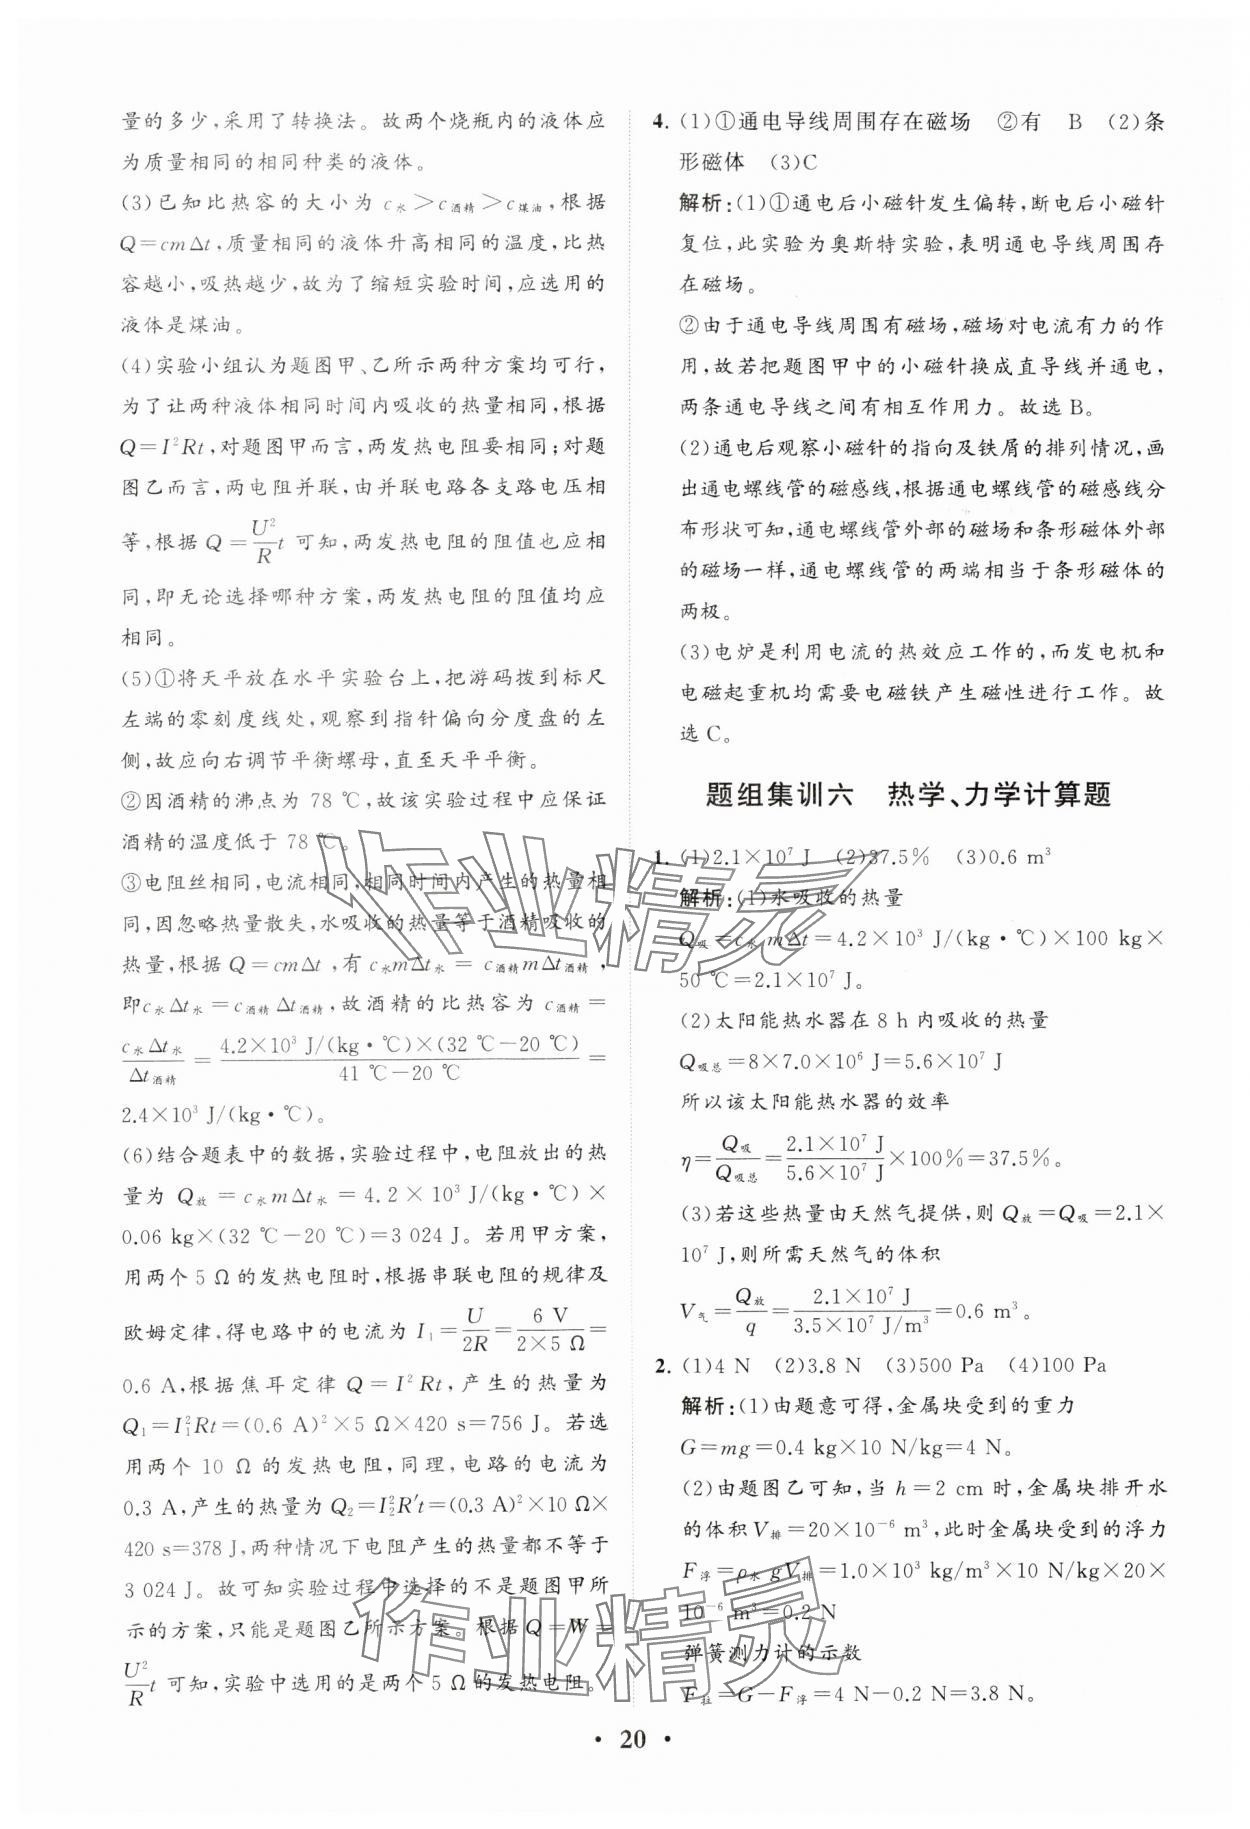 量的多少,采用了转换法。故两个烧瓶内的液体应
为质量相同的相同种类的液体。
(3)已知比热容的大小为 c水>c酒精>c煤油,根据
Q=cmΔt,质量相同的液体升高相同的温度,比热
容越小,吸热越少,故为了缩短实验时间,应选用的
液体是煤油。
(4)实验小组认为题图甲、乙所示两种方案均可行,
为了让两种液体相同时间内吸收的热量相同,根据
Q=I²Rt,对题图甲而言,两发热电阻要相同;对题
图乙而言,两电阻并联,由并联电路各支路电压相
等,根据 Q=U²/R t 可知,两发热电阻的阻值也应相
同,即无论选择哪种方案,两发热电阻的阻值均应
相同。
(5)①将天平放在水平实验台上,把游码拨到标尺
左端的零刻度线处,观察到指针偏向分度盘的左
侧,故应向右调节平衡螺母,直至天平平衡。
②因酒精的沸点为 78 ℃,故该实验过程中应保证
酒精的温度低于 78 ℃。
③电阻丝相同,电流相同,相同时间内产生的热量相
同,因忽略热量散失,水吸收的热量等于酒精吸收的
热量,根据 Q=cmΔt,有 c水mΔt水=c酒精mΔt酒精,
即c水Δt水=c酒精Δt酒精,故酒精的比热容为 c酒精=
c水Δt水/Δt酒精=4.2×10³ J/(kg·℃)×(32 ℃-20 ℃)/41 ℃-20 ℃=
2.4×10³ J/(kg·℃)。
(6)结合题表中的数据,实验过程中,电阻放出的热
量为 Q放=c水mΔt水=4.2×10³ J/(kg·℃)×
0.06 kg×(32 ℃-20 ℃)=3 024 J。若用甲方案,
用两个 5 Ω 的发热电阻时,根据串联电阻的规律及
欧姆定律,得电路中的电流为 I₁=U/2R=6 V/2×5 Ω=
0.6 A,根据焦耳定律 Q=I²Rt,产生的热量为
Q₁=I₁²Rt=(0.6 A)²×5 Ω×420 s=756 J。若选
用两个 10 Ω 的发热电阻,同理,电路的电流为
0.3 A,产生的热量为 Q₂=I₂²R′t=(0.3 A)²×10 Ω×
420 s=378 J,两种情况下电阻产生的热量都不等于
3 024 J。故可知实验过程中选择的不是题图甲所
示的方案,只能是题图乙所示方案。根据 Q=W=
U²/R t 可知,实验中选用的是两个 5 Ω的发热电阻。
4. (1)①通电导线周围存在磁场 ②有 B (2)条
形磁体 (3)C
解析:(1)①通电后小磁针发生偏转,断电后小磁针
复位,此实验为奥斯特实验,表明通电导线周围存
在磁场。
②由于通电导线周围有磁场,磁场对电流有力的作
用,故若把题图甲中的小磁针换成直导线并通电,
两条通电导线之间有相互作用力。故选 B。
(2)通电后观察小磁针的指向及铁屑的排列情况,画
出通电螺线管的磁感线,根据通电螺线管的磁感线分
布形状可知,通电螺线管外部的磁场和条形磁体外部
的磁场一样,通电螺线管的两端相当于条形磁体的
两极。
(3)电炉是利用电流的热效应工作的,而发电机和
电磁起重机均需要电磁铁产生磁性进行工作。故
选 C。
题组集训六 热学、力学计算题
1. (1)2.1×10⁷ J (2)37.5% (3)0.6 m³
解析:(1)水吸收的热量
Q吸=c水mΔt=4.2×10³ J/(kg·℃)×100 kg×
50 ℃=2.1×10⁷ J。
(2)太阳能热水器在 8 h 内吸收的热量
Q吸总=8×7.0×10⁶ J=5.6×10⁷ J
所以该太阳能热水器的效率
η=Q吸/Q吸总=2.1×10⁷ J/5.6×10⁷ J×100%=37.5%。
(3)若这些热量由天然气提供,则 Q放=Q吸=2.1×
10⁷ J,则所需天然气的体积
V气=Q放/q=2.1×10⁷ J/3.5×10⁷ J/m³=0.6 m³。
2. (1)4 N (2)3.8 N (3)500 Pa (4)100 Pa
解析:(1)由题意可得,金属块受到的重力
G=mg=0.4 kg×10 N/kg=4 N。
(2)由题图乙可知,当 h=2 cm 时,金属块排开水
的体积V排=20×10⁻⁶ m³,此时金属块受到的浮力
F浮=ρ水gV排=1.0×10³ kg/m³×10 N/kg×20×
10⁻⁶ m³=0.2 N
弹簧测力计的示数
F拉=G-F浮=4 N-0.2 N=3.8 N。
作业精灵
作业精灵
• 20 •